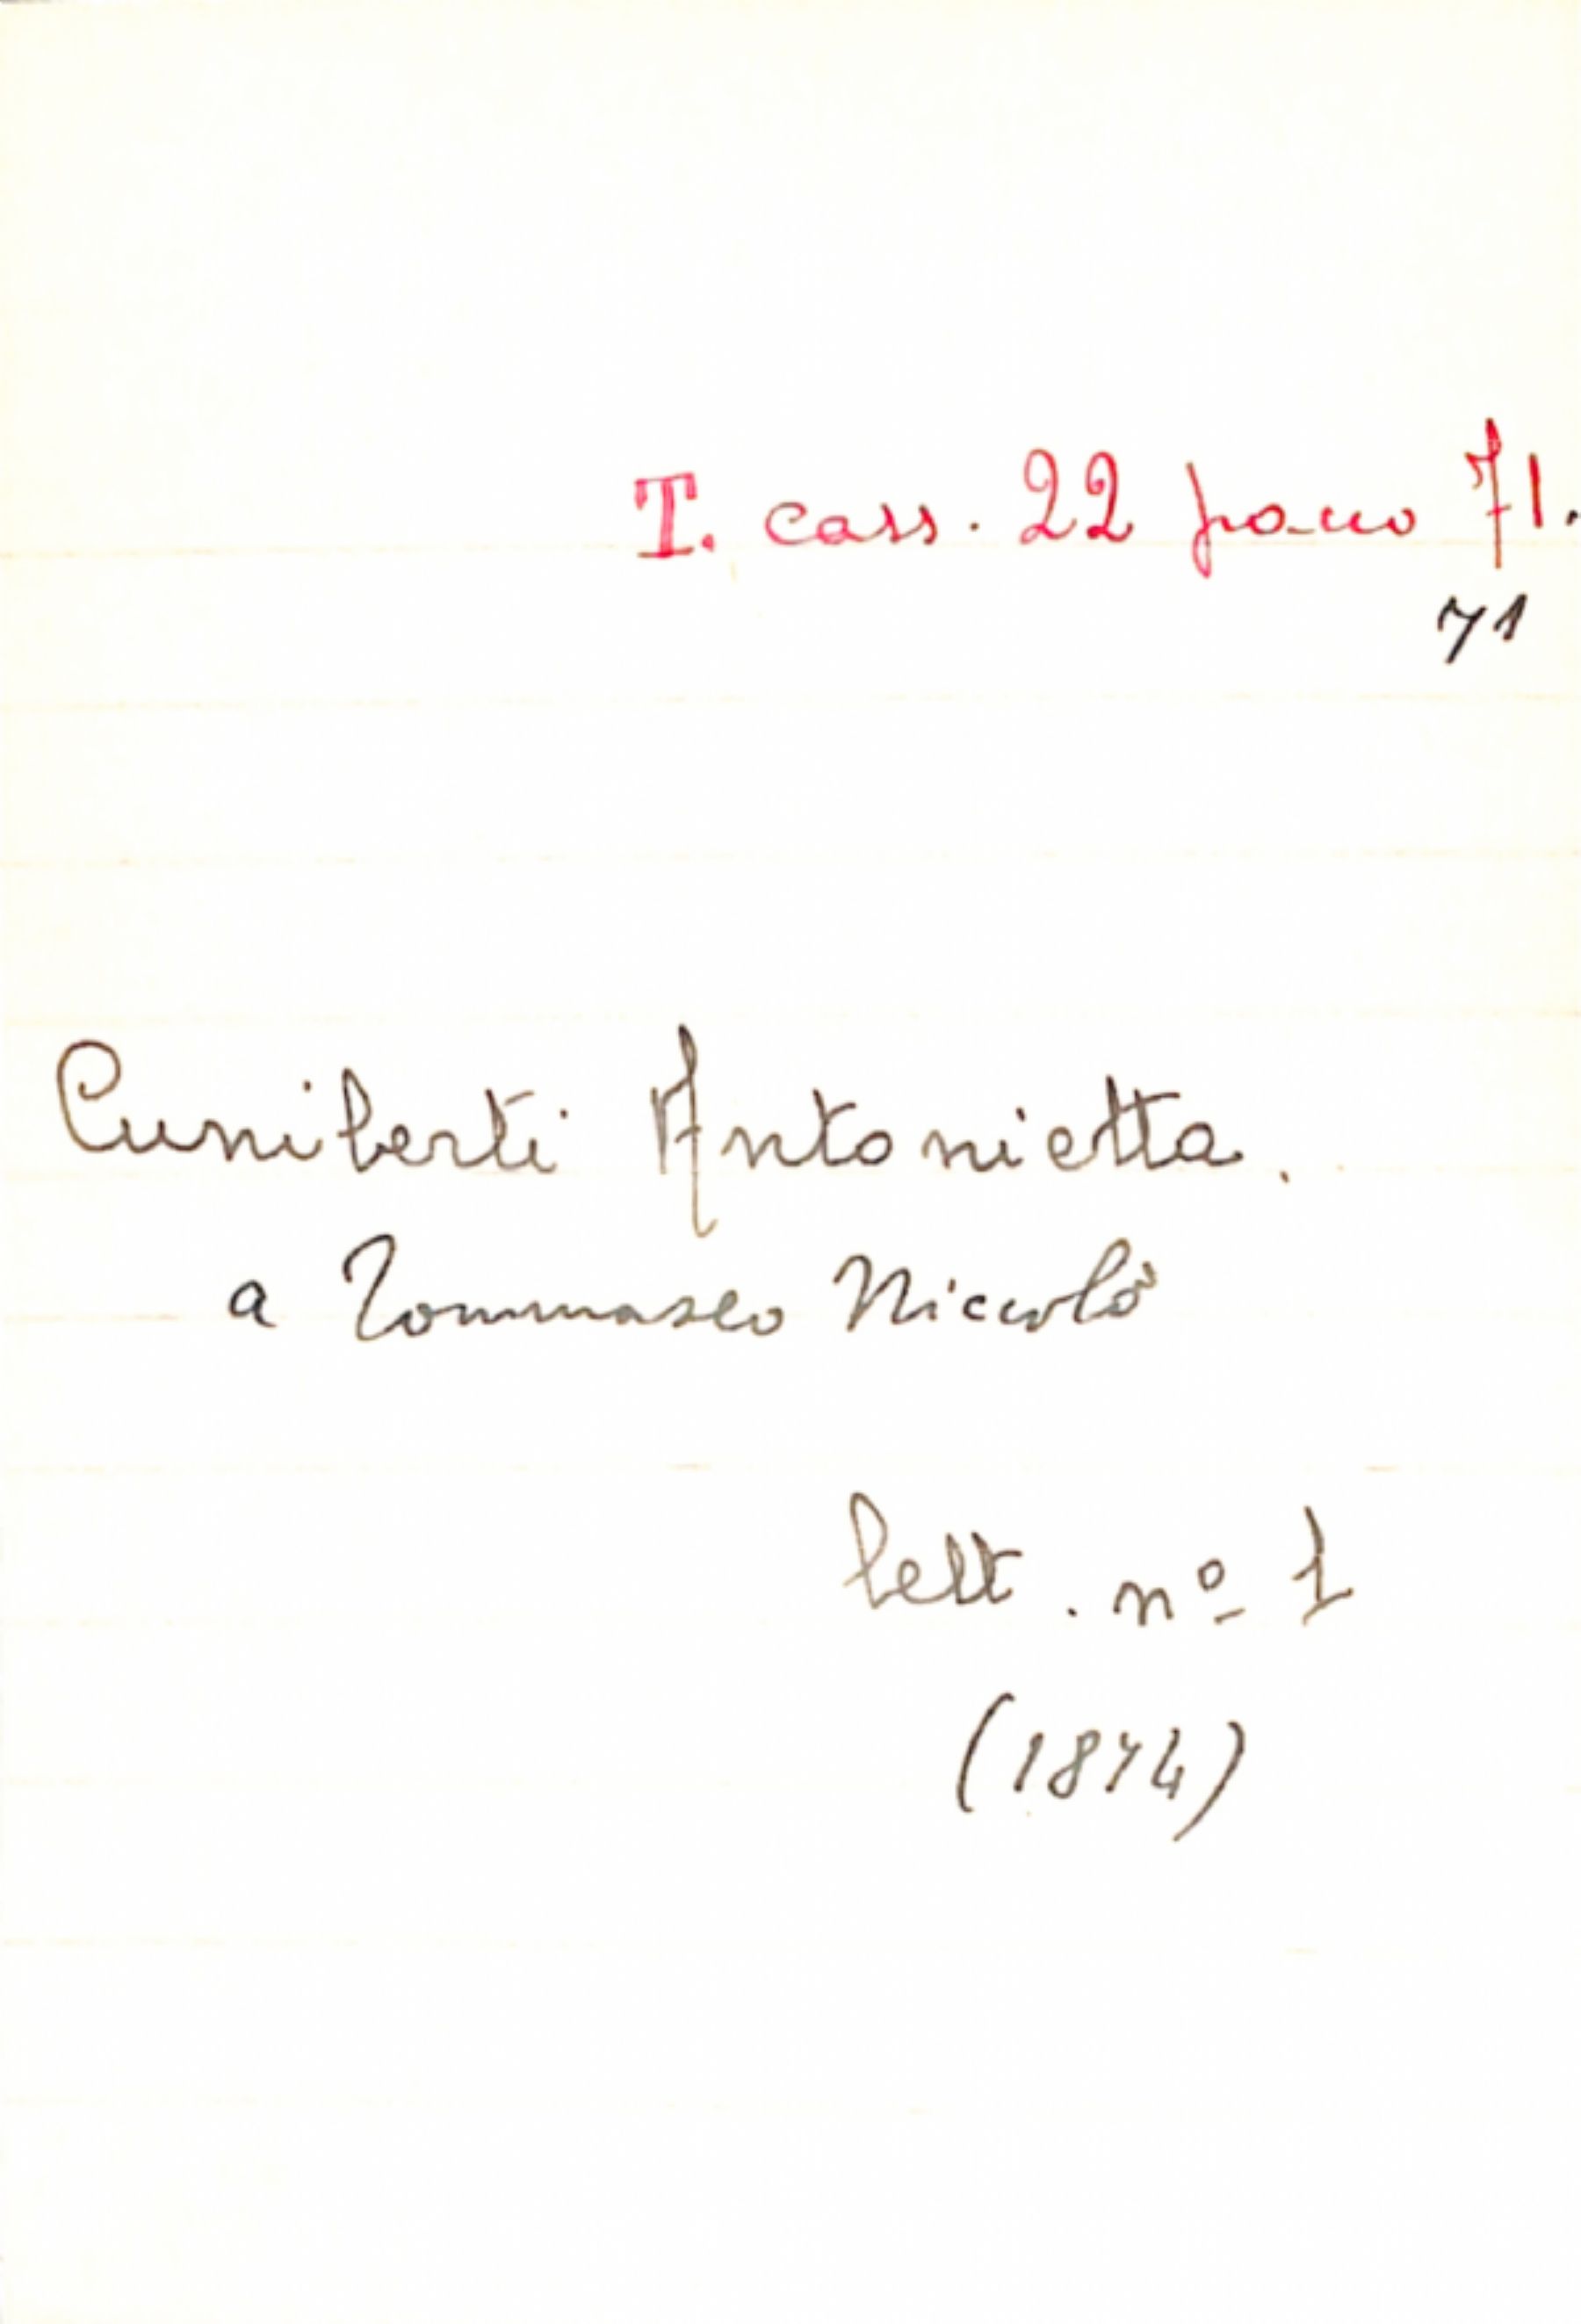 T. cass. 22 pacco 71.
71
Cuniberti Antonietta.
a Tommaseo Niccolò
lett. nº 1
(1874)